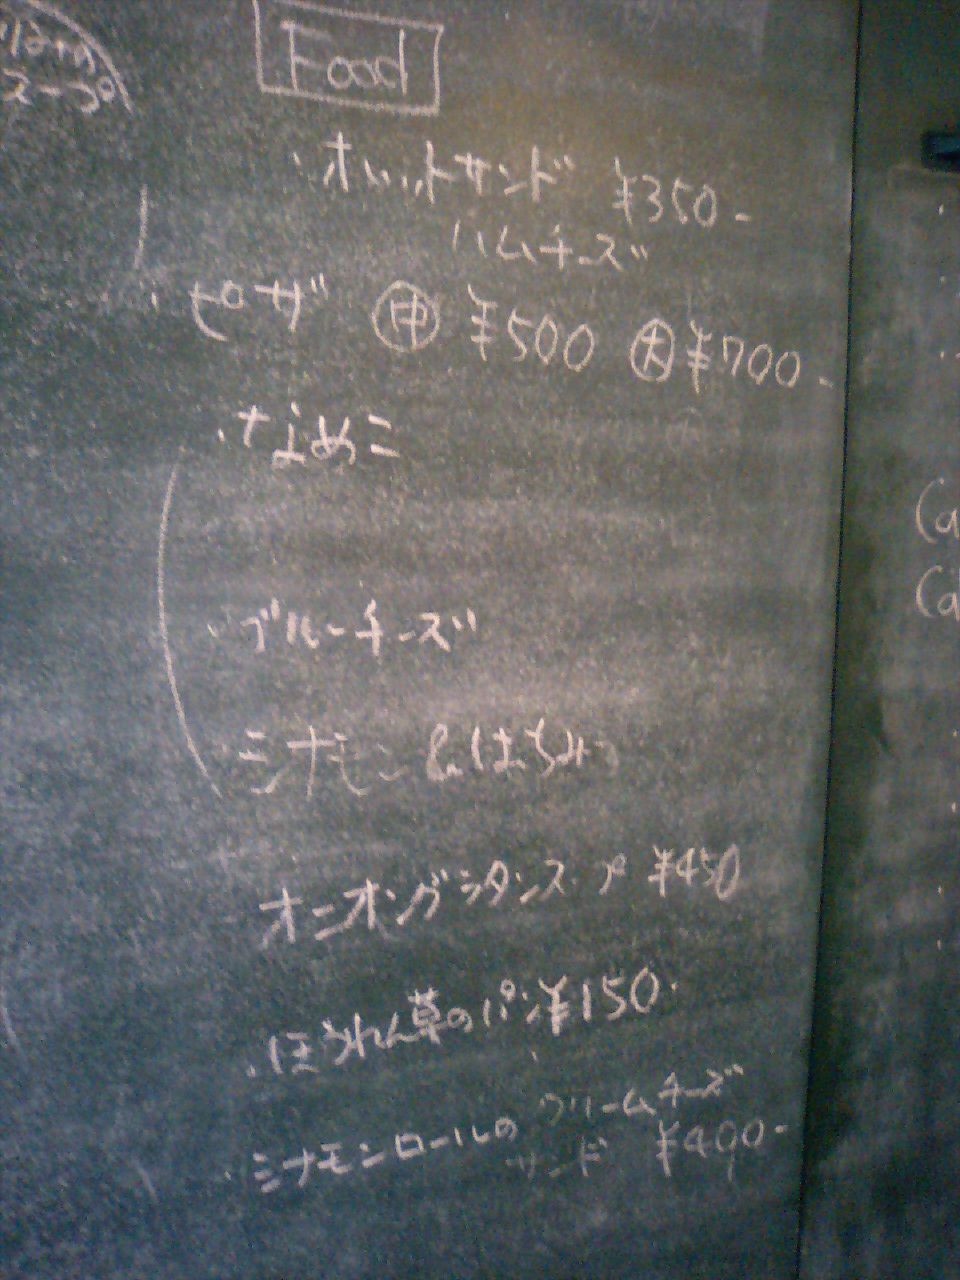 スープ
Food
・ホットサンド ¥350-
ハムチーズ
・ピザ ㊥ ¥500 ㊅ ¥700-
・なめこ
・ブルーチーズ
シナモン&はちみつ
オニオングラタンスープ ¥450
・ほうれん草のパン ¥150-
・シナモンロールの クリームチーズ
サンド ¥490-
(a
(a